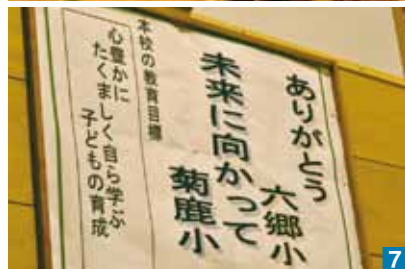 ありがとう
六郷小
未来に向かって
菊鹿小
本校の教育目標
心豊かに
たくましく自ら学ぶ
子どもの育成
7